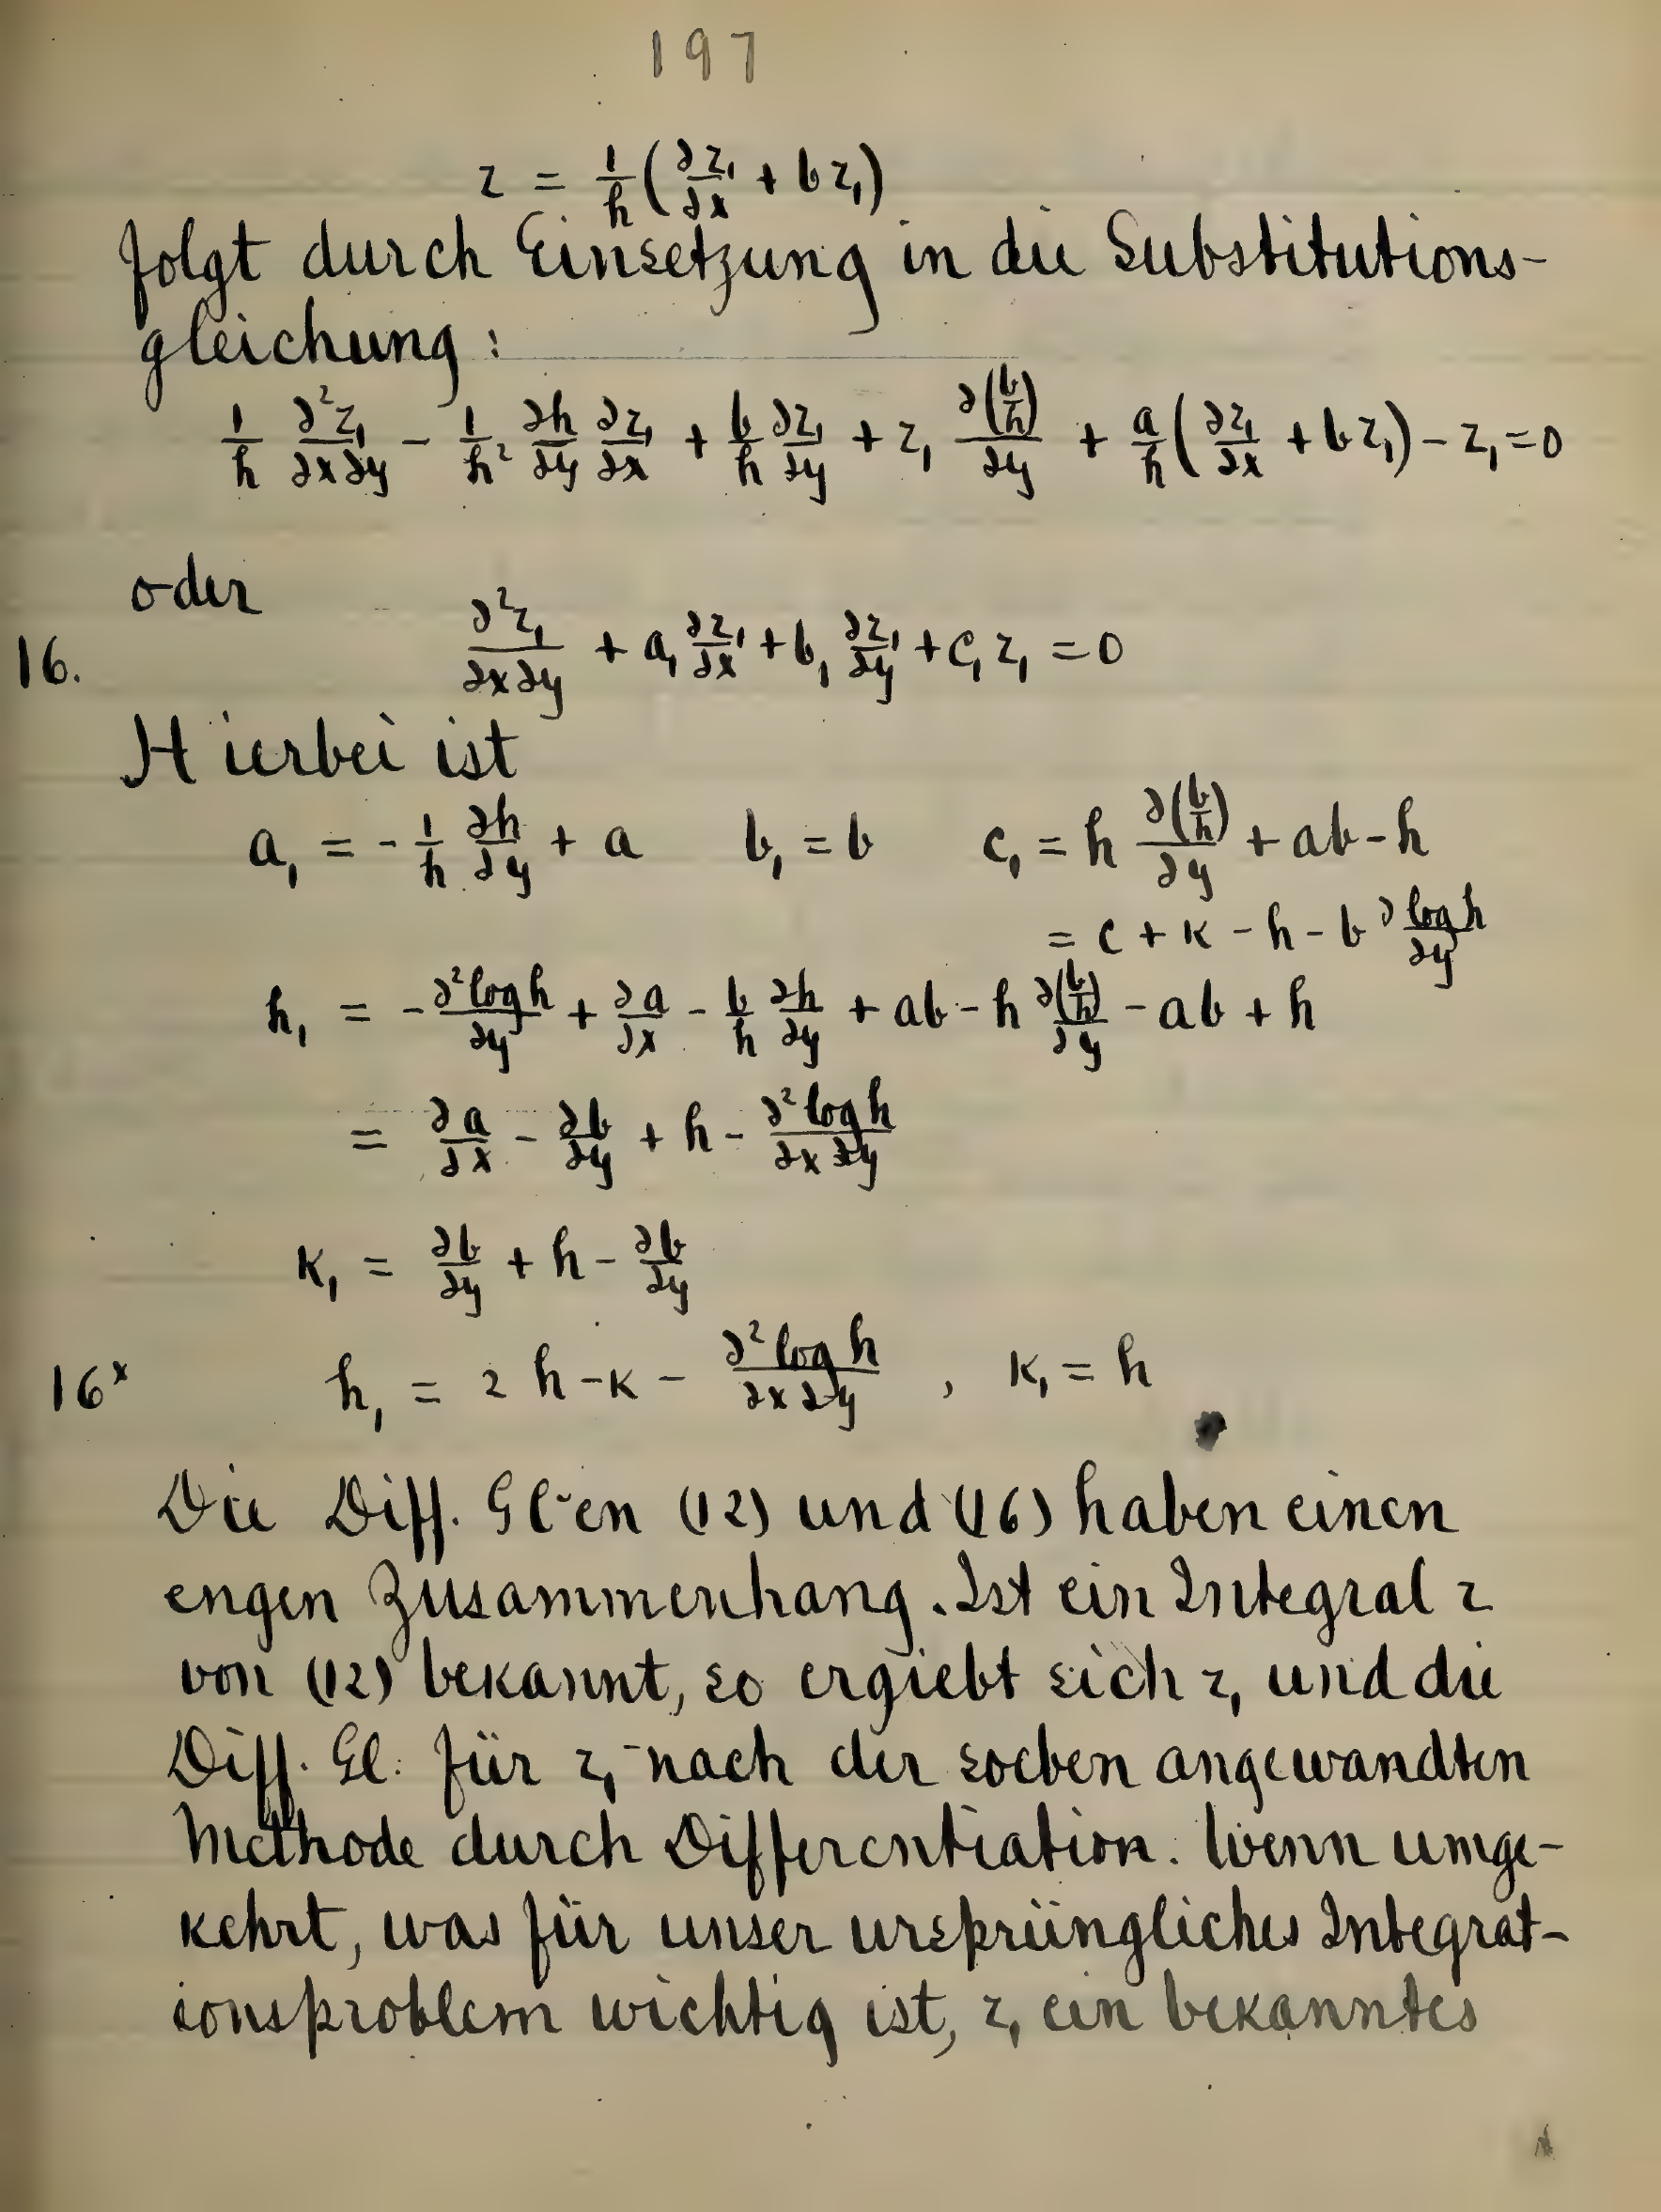 197
z = \frac{1}{h}(\frac{∂z_1}{∂x} + b z_1)
folgt durch Einsetzung in die Substitutions-
gleichung:
\frac{1}{h} \frac{∂^2z_1}{∂x∂y} - \frac{1}{h^2} \frac{∂h}{∂y} \frac{∂z_1}{∂x} + \frac{b}{h} \frac{∂z_1}{∂y} + z_1 \frac{∂(\frac{b}{h})}{∂y} + \frac{a}{h}(\frac{∂z_1}{∂x} + b z_1) - z_1 = 0
oder
16. \frac{∂^2z_1}{∂x∂y} + a_1 \frac{∂z_1}{∂x} + b_1 \frac{∂z_1}{∂y} + c_1 z_1 = 0
Hierbei ist
a_1 = -\frac{1}{h} \frac{∂h}{∂y} + a b_1 = b c_1 = h \frac{∂(\frac{b}{h})}{∂y} + ab - h
= c + k - h - b \frac{∂ log h}{∂y}
h_1 = -\frac{∂^2 log h}{∂y} + \frac{∂a}{∂x} - \frac{b}{h} \frac{∂h}{∂y} + ab - h \frac{∂(\frac{b}{h})}{∂y} - ab + h
= \frac{∂a}{∂x} - \frac{∂b}{∂y} + h - \frac{∂^2 log h}{∂x∂y}
k_1 = \frac{∂b}{∂y} + h - \frac{∂b}{∂y}
16^x h_1 = 2h - k - \frac{∂^2 log h}{∂x∂y} , k_1 = h
Die Diff. Gl-en (12) und (16) haben einen
engen Zusammenhang. Ist ein Integral z
von (12) bekannt, so ergiebt sich z_1 und die
Diff. Gl. für z_1 nach der soeben angewandten
Methode durch Differentiation. Wenn umge-
kehrt, was für unser ursprüngliches Integrat-
ionsproblem wichtig ist, z_1 ein bekanntes